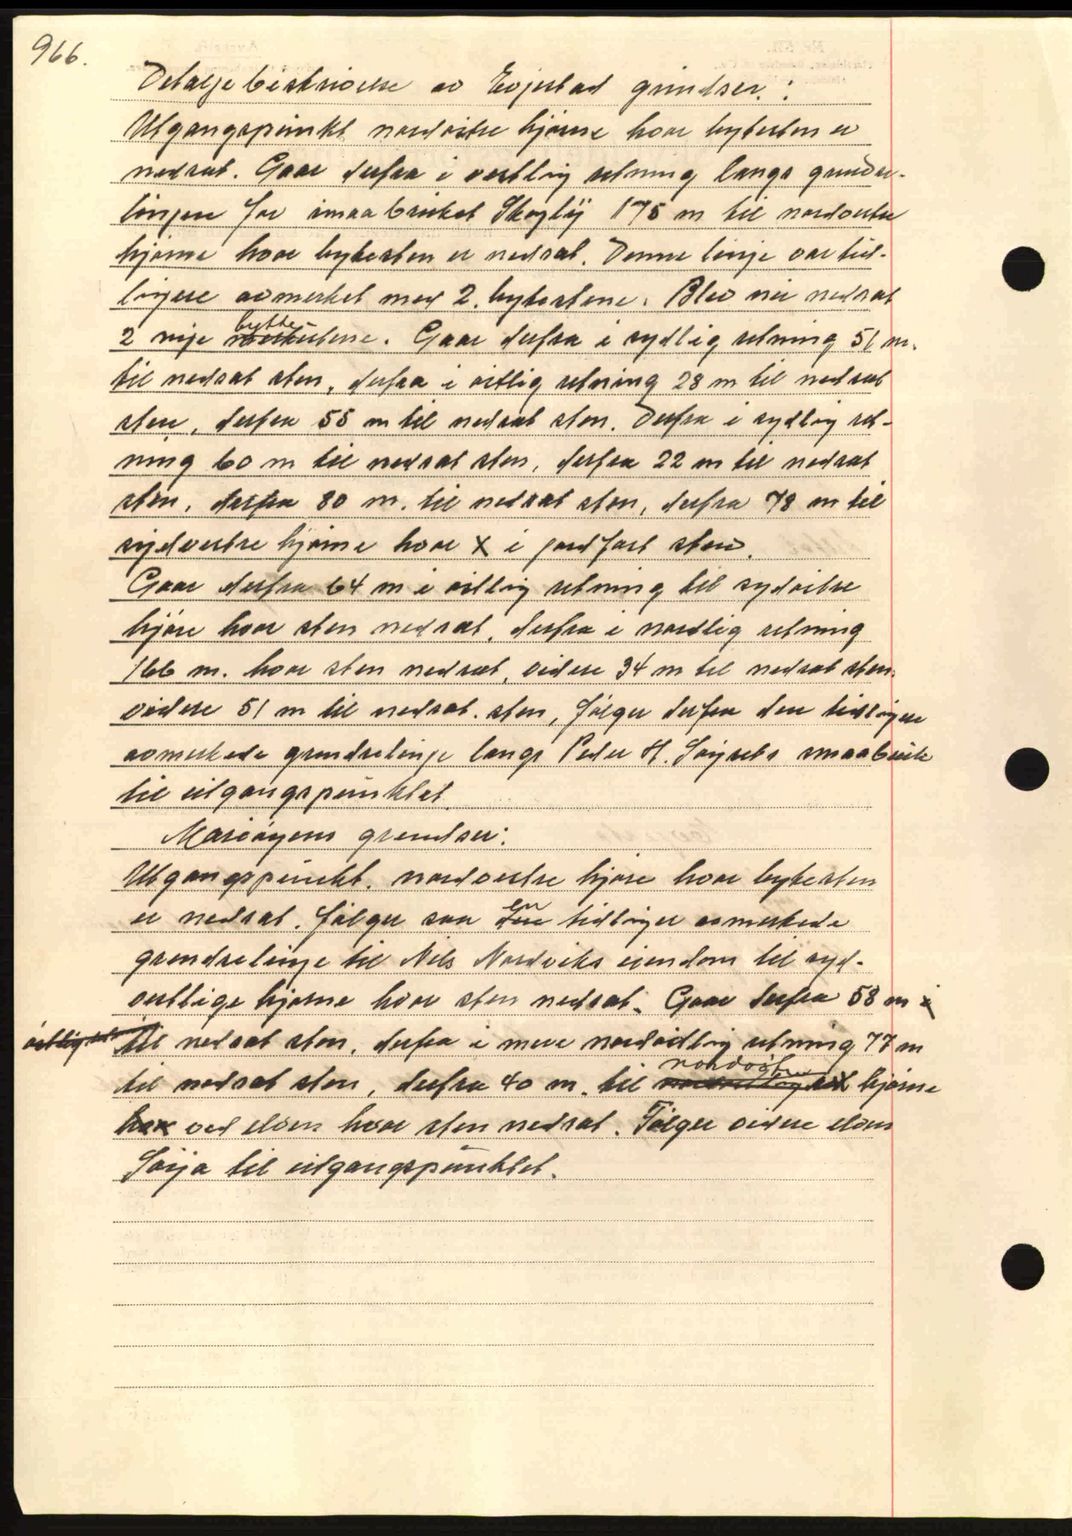 966.
Detalje beskrivelse av Evjestad grindser:
Utgangspunkt nordöstre hjörne hvor bytesten er
nedsat. Gaar derfra i vestlig retning langs grindse-
linjene for smaabruket Skoglÿ 175 m til nordvestre
hjörne hvor bytesten er nedsat. Denne linje var tid-
ligere avmerket med 2. bytestene. Blev nu nedsat
2 nije bytte- stene. Gaar derfra i sydlig retning 51 m.
til nedsat sten, derfra i östlig retning 28 m til nedsat
sten, derfra 55 m til nedsat sten. Derfra i sydlig ret-
ning 60 m til nedsat sten, derfra 22 m til nedsat
sten, derfra 80 m. til nedsat sten, derfra 78 m til
sydvestre hjörne hvor X i jordfast sten.
Gaar derfra 64 m i östlig retning til sydöstre
hjöre hvor sten nedsat, derfra i nordlig retning
166 m. hvor sten nedsat, videre 34 m til nedsat sten
videre 51 m til nedsat. sten, fölger derfra den tidligere
avmerkede grendselinje langs Peder H. smaabruk
til utgangspunktet.
grendser:
Utgangspunkt. nordvestre hjöre hvor bytesten
er nedsat. fölger saa en tidliger avmerkede
grendselinje til Nils Nordviks eiendom til syd-
vestlige hjörne hvor sten nedsat. Gaar derfra 58 m i
til nedsat sten, derfra i mere nordöstlig retning 77 m
til nedsat sten, derfra 40 m. til nordöstre hjörne
ved elven hvor sten nedsat. Fölger videre elven
Söija til utgangspunktet.